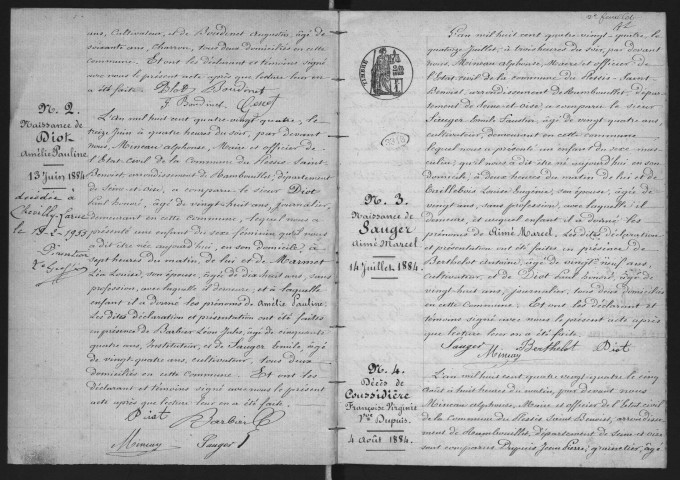 ans, Cultivateur, et de Boudenot Augustin, âgé de
soixante ans, Charron, tous deux domiciliés en cette
commune. Et ont les déclarant et témoins signé
avec nous le présent acte après que lecture leur en
a été faite.
N. 2.
Naissance de
Diot
Amélie Pauline
13 Juin 1884
décédée à
Chevilly-Larue
L'an mil huit cent quatre-vingt-quatre, le
treize Juin à quatre heures du soir, par devant
nous, Mineau Alphonse, Maire et officier de
l'Etat-civil de la Commune du Plessis Saint-
Benoist, arrondissement de Rambouillet, département
de Seine et Oise, a comparu le sieur Diot
âgé de vingt-huit ans, journalier,
demeurant en cette commune, lequel nous a
présenté un enfant du sexe féminin qu'il nous
a dit être née aujourd'hui, en son domicile, à
sept heures du matin, de lui et de Marmet
Léa Louise, son épouse, âgée de dix huit ans, sans
profession, avec laquelle il demeure, et à laquelle
enfant il a donné les prénoms de Amélie Pauline.
Les dites déclaration et présentation ont été faites
en présence de Barbier Léon Jules, âgé de cinquante
quatre ans, Instituteur, et de Sauger Emile, âgé
de vingt-quatre ans, cultivateur, tous deux
domiciliés en cette Commune. Et ont les
déclarant et témoins signé avec nous le présent
acte après que lecture leur en a été faite.
Diot Barbier
Mineau Sauger
TIMBRE
N. 3.
Naissance de
Sauger
Aimé Marcel
14 Juillet 1884.
L'an mil huit cent quatre-vingt-quatre, le
quatorze Juillet, à trois heures du soir, par devant
nous, Mineau Alphonse, Maire et officier de
l'Etat civil de la commune du Plessis-Saint-
Benoist, arrondissement de Rambouillet, départe-
ment de Seine et Oise, a comparu le sieur
Sauger Emile, âgé de vingt-quatre ans,
cultivateur, demeurant en cette commune,
lequel nous a présenté un enfant du sexe mas-
culin, qu'il nous a dit être né aujourd'hui en son
domicile, à deux heures du matin, de lui et de
Louise Eugénie, son épouse, âgée de
vingt ans, sans profession, avec laquelle il
demeure, et auquel enfant il a donné les
prénoms de Aimé Marcel. Les dites déclaration
et présentation ont été faites en présence de
Berthelot Antoine, âgé de vingt neuf ans,
Cultivateur, et de Diot âgé de
vingt-huit ans, journalier, tous deux domiciliés
en cette Commune. Et ont les déclarant et
témoins signé avec nous le présent acte après
que lecture leur en a été faite.
Sauger Berthelot Diot
Mineau
N. 4.
Décès de
Coussidière
Françoise Virginie
Vve Dupuis.
4 Août 1884.
L'an mil huit cent quatre-vingt quatre le cinq
Août à huit heures du matin, par devant nous,
Mineau Alphonse, Maire et officier de l'Etat civil
de la Commune du Plessis Saint Benoist, arrondisse-
ment de Rambouillet, département de Seine et Oise
sont comparus Dupuis Jean Pierre, grainetier, âgé